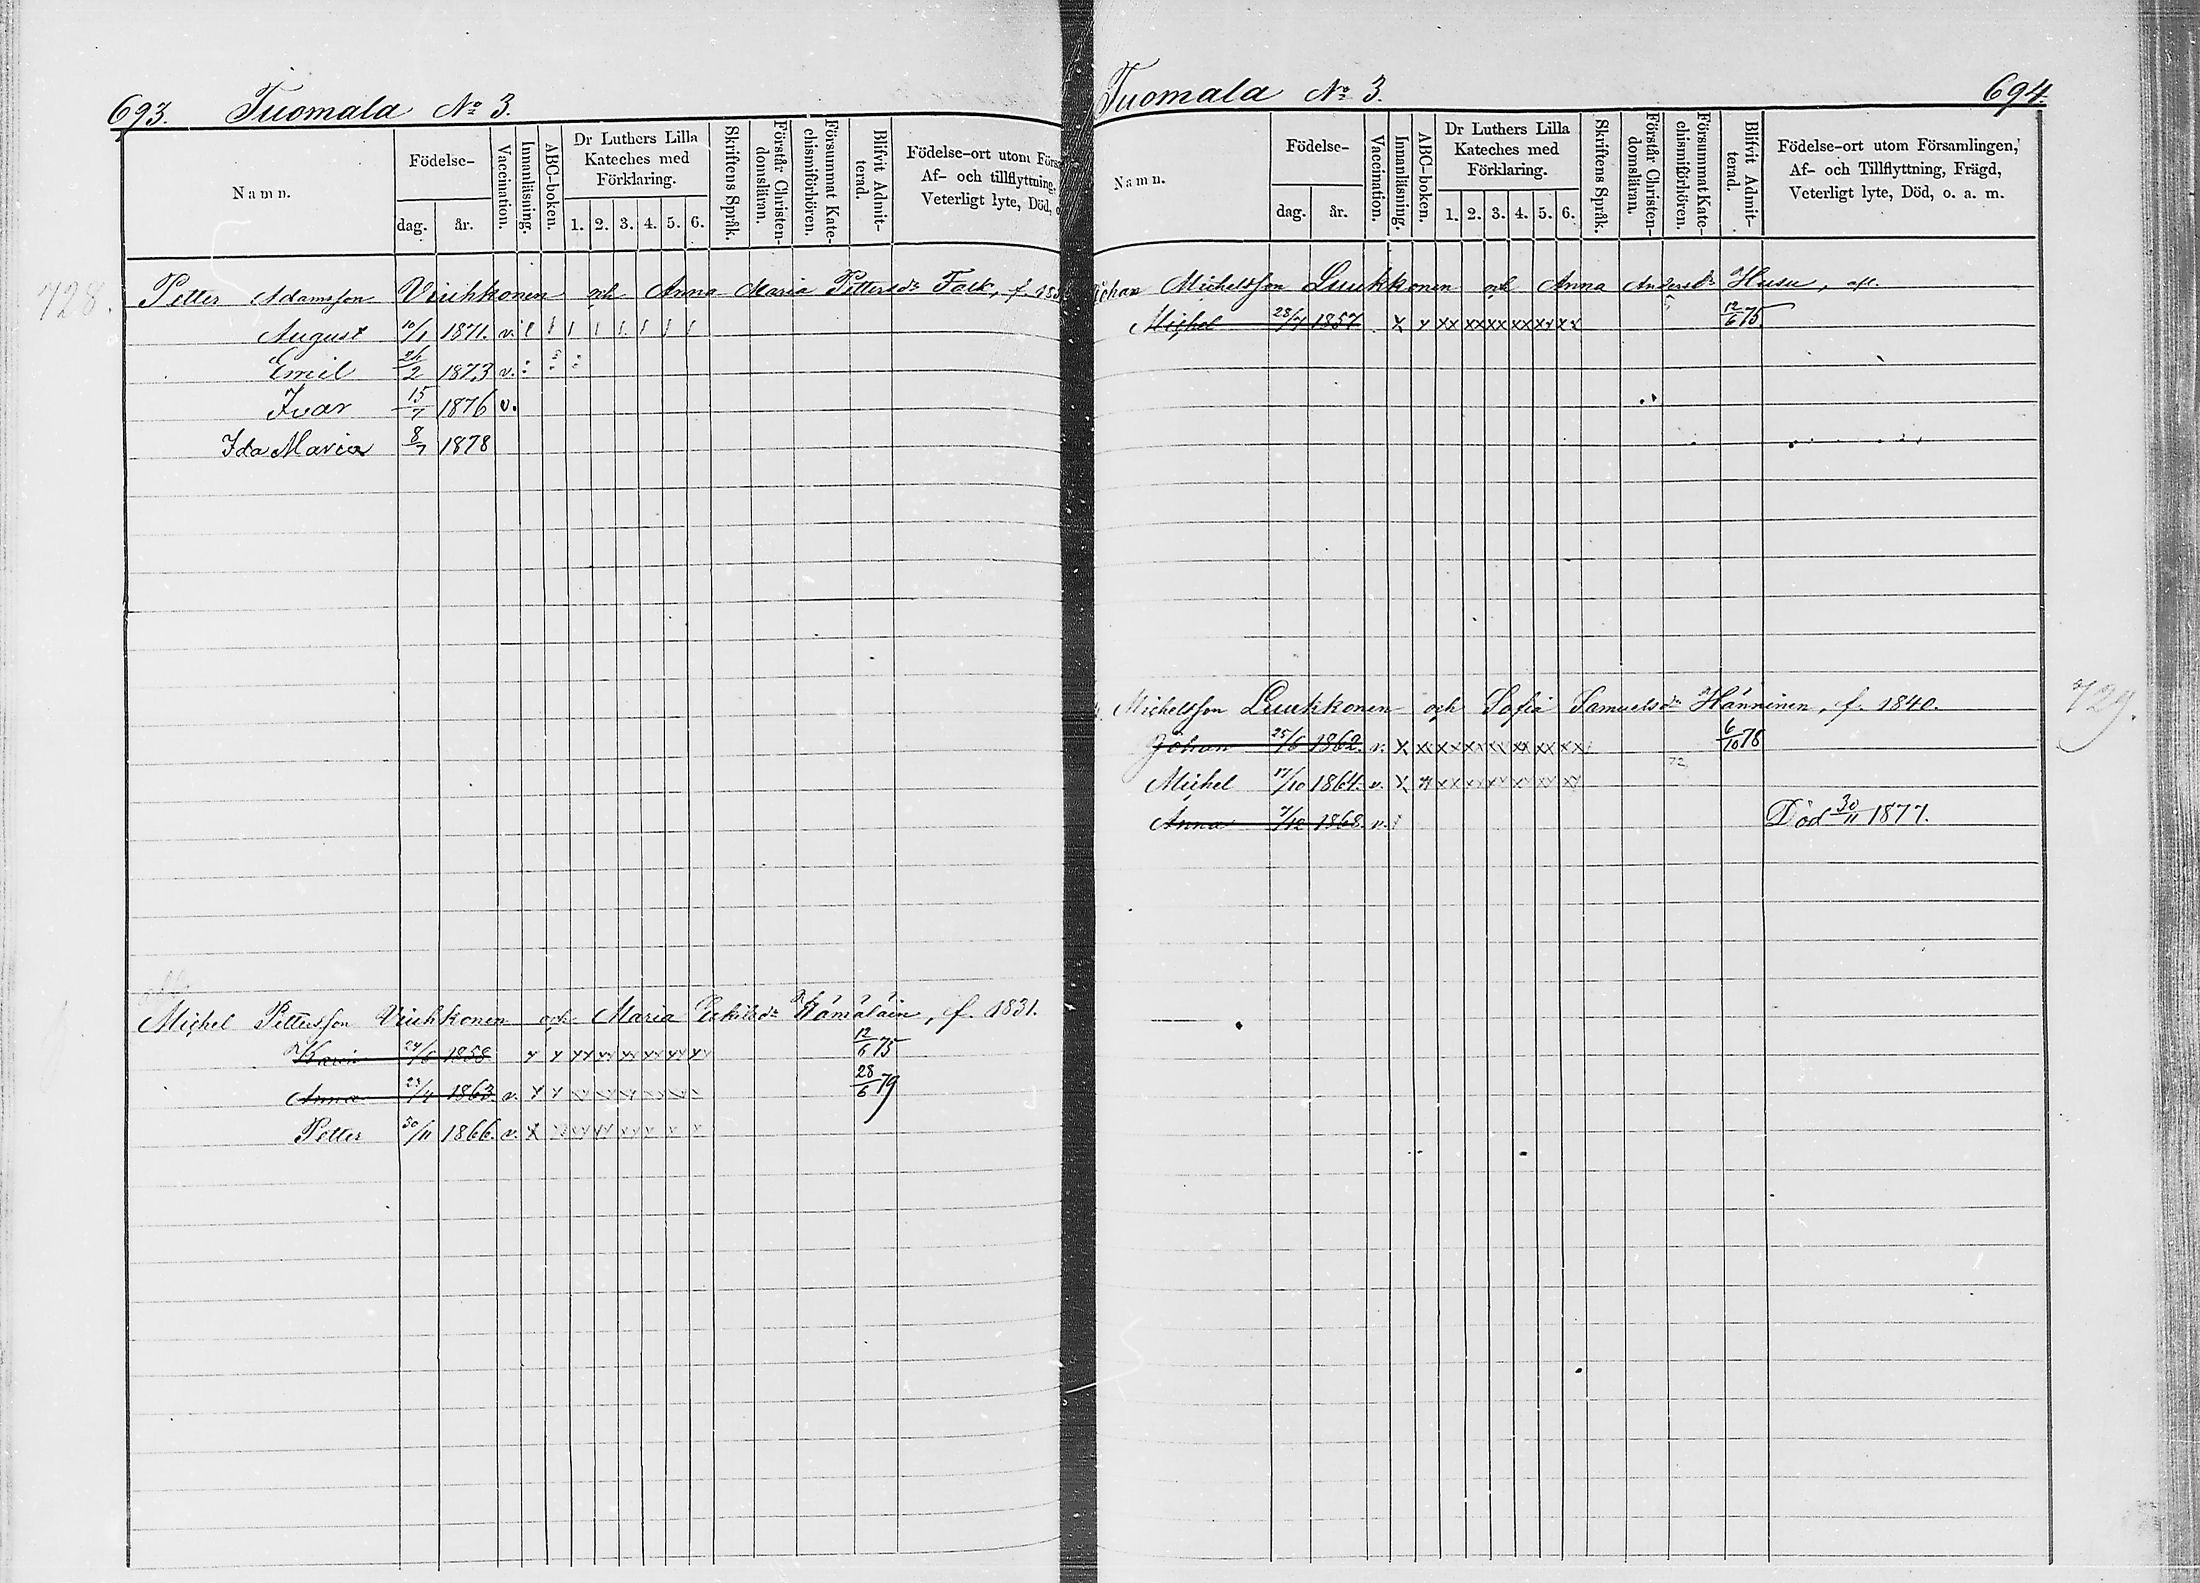 693. Tuomala No 3.
Namn.
Födelse-
dag. år.
Vaccination.
Innanläsning.
ABC-boken.
Dr Luthers Lilla Kateches med Förklaring.
1. 2. 3. 4. 5. 6.
Skriftens Språk.
Förstår Christen-domsläran.
Försummat Kate-chismiförhören.
Blifvit Admit-terad.
Födelse-ort utom
Af- och tillflyttning,
Veterligt lyte, Död,
728.
Petter Adamsson Viuhkonen och Anna Maria Pettersdr Falk, f.
August 10/1 1871. v.
Emil 2 1873 v.
Ivar 15/7 1876 v.
Ida Maria 8/7 1878
Michel Pettersson Viuhkonen och Maria Hämäläin, f. 1831.
Karin 24/6 1858 x x xx xx xx xx xx x 12/6 75
Anna 23/4 1863. v. x x xx xx xx 28/6 79
Petter 30/11 1866. v. x
Tuomala No 3. 694.
Namn.
Födelse-
dag. år.
Vaccination.
Innanläsning.
ABC-boken.
Dr Luthers Lilla Kateches med Förklaring.
1. 2. 3. 4. 5. 6.
Skriftens Språk.
Förstår Christen-domsläran.
Försummat Kate-chismiförhören.
Blifvit Admit-terad.
Födelse-ort utom Församlingen,
Af- och Tillflyttning, Frägd,
Veterligt lyte, Död, o. a. m.
Michelsson Luukkonen och Anna Andersdr Husu,
Michel 28/7 1857. x x xx xx xx xx xx xx 12/6 75
Michelsson Luukkonen och Sofia Samuelsdr Hänninen, f. 1840. 729.
Johan 25/6 1862. v. x xx xx xx xx xx xx xx 6/10 78
72
Michel 17/10 1864. v. x xx xx xx xx xx xx xx
Anna 7/12 1868. v. Död 30/11 1877.